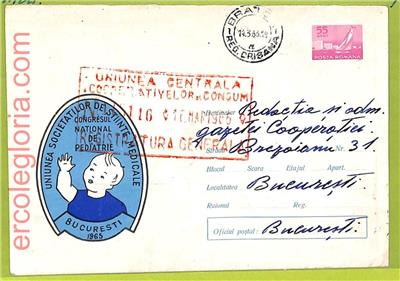 ercolegloria.com
14.3.66
REG. CRISANA
55
POSTA ROMANA
UNIUNEA CENTRALA
A COOPERATIVELOR CONSUM
116 16.MAR 1966
REGISTRATURA GENERALA
UNIUNEA SOCIETATILOR DE STIINTE MEDICALE
CONGRESUL
NATIONAL
DE
PEDIATRIE
BUCURESTI
1965
Redactia si adm.
gazetei Cooperatiei
Brezoianu 31.
Blocul Scara Etajul Apart.
Localitatea Bucuresti
Raionul Reg.
Oficiul poștal: Bucuresti.